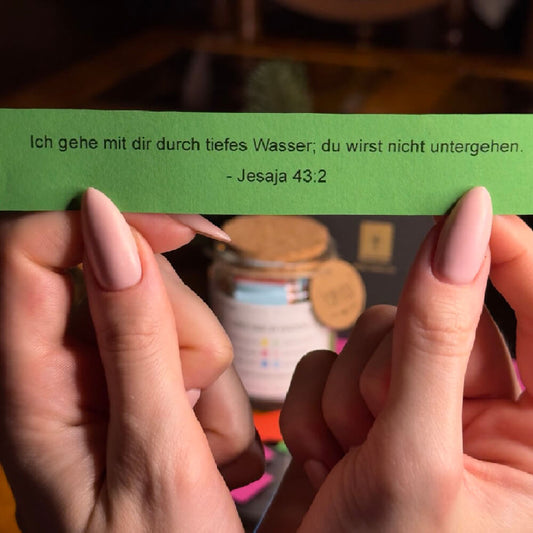 Ich gehe mit dir durch tiefes Wasser; du wirst nicht untergehen.
- Jesaja 43:2